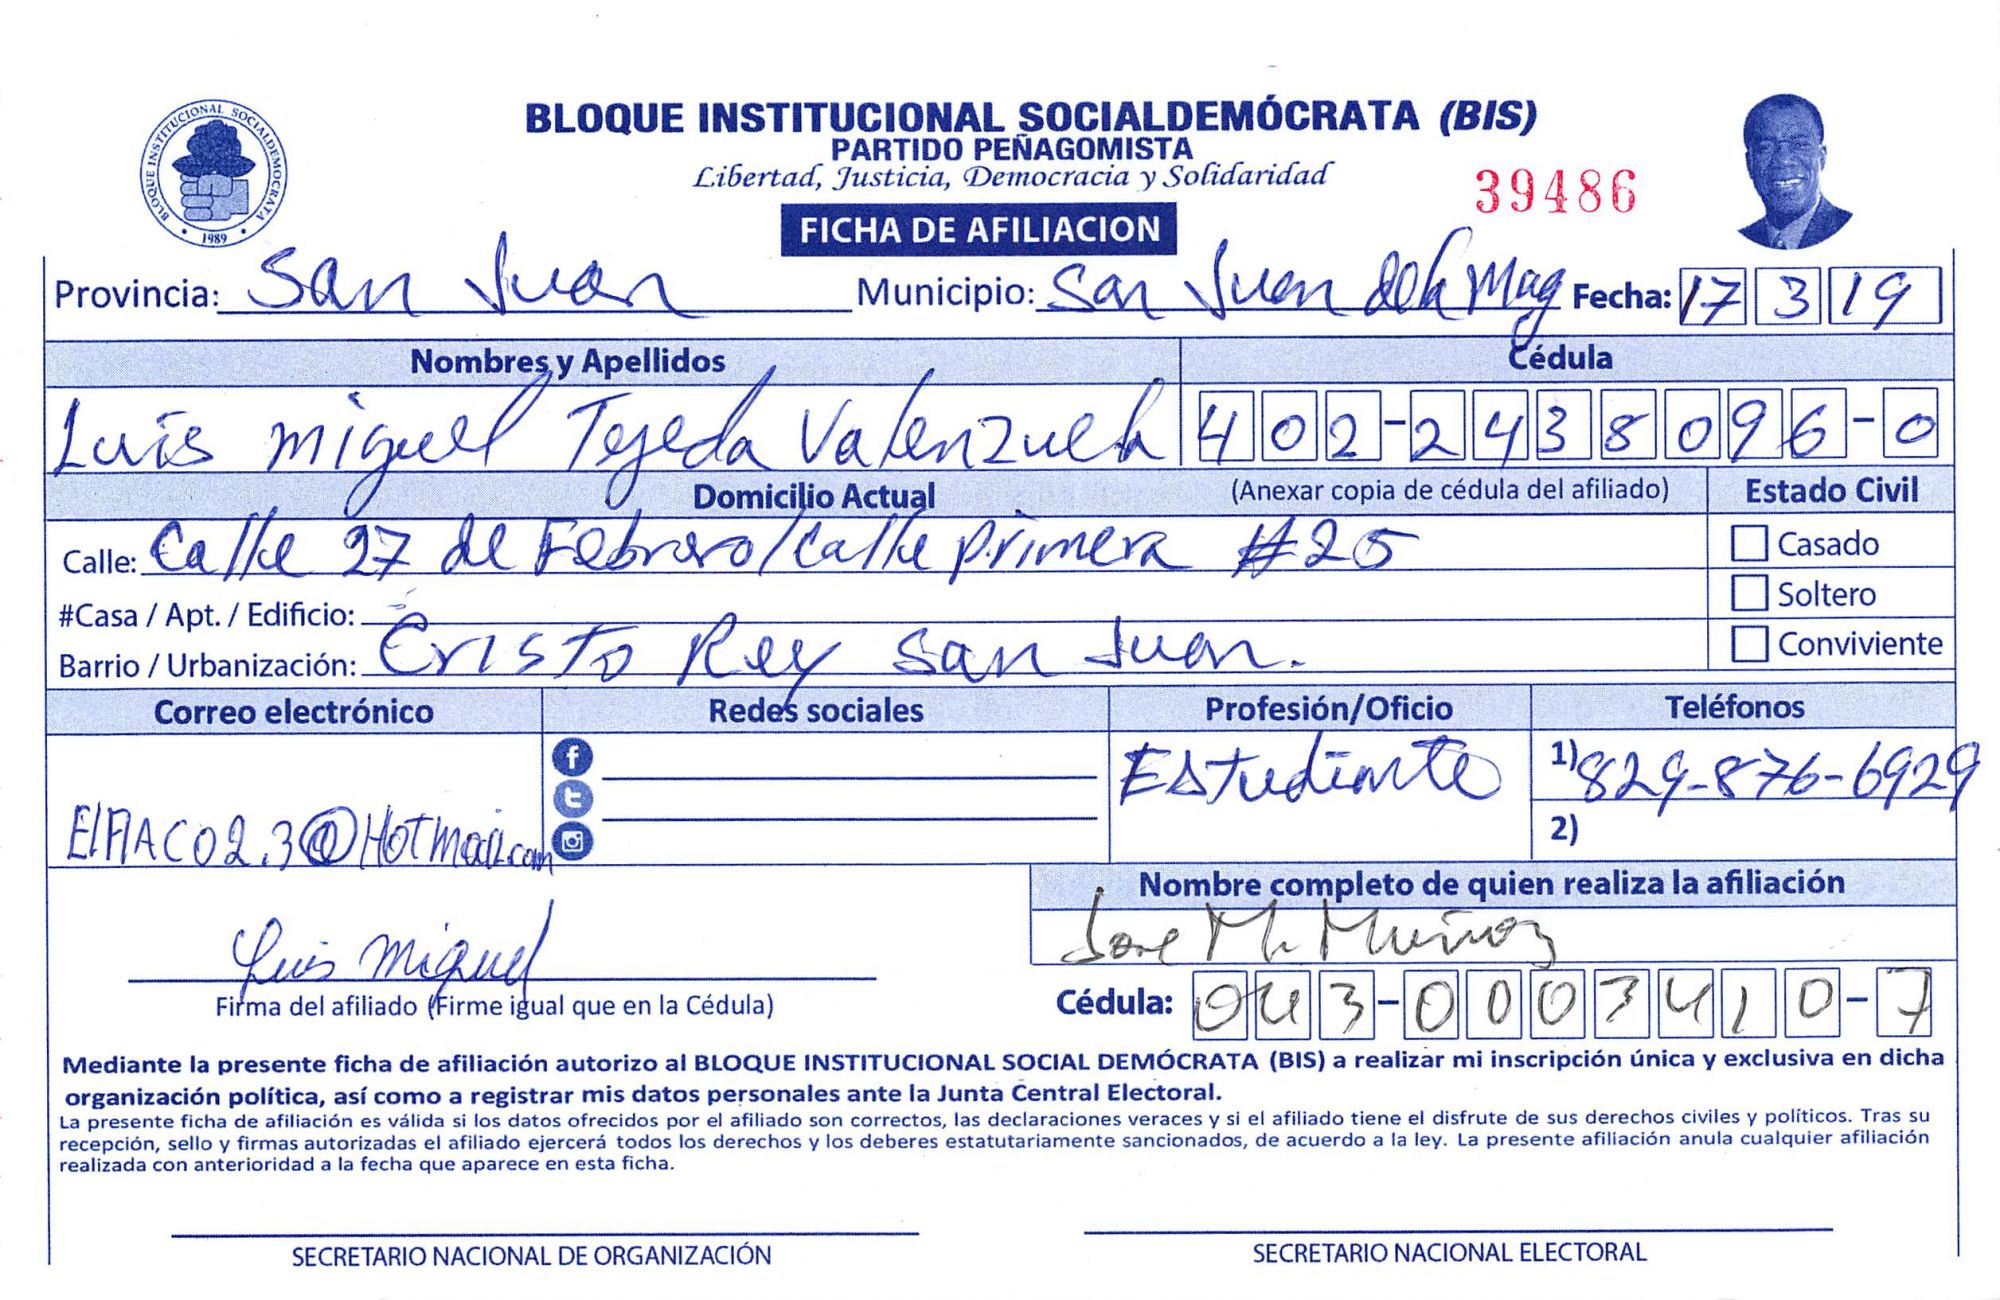 BLOQUE INSTITUCIONAL SOCIALDEMÓCRATA (BIS)
PARTIDO PEÑAGOMISTA
Libertad, Justicia, Democracia y Solidaridad
39486
BLOQUE INSTITUCIONAL SOCIALDEMOCRATA
1989
FICHA DE AFILIACION
Provincia: San Juan Municipio: San Juan de la Mag Fecha: 17 3 19
Nombres y Apellidos Cédula
Luis Miguel Tejeda Valenzuela 402-2438096-0
Domicilio Actual (Anexar copia de cédula del afiliado) Estado Civil
Calle: Calle 27 de Febrero/Calle primera #25 Casado
#Casa / Apt. / Edificio: Soltero
Barrio / Urbanización: Cristo Rey San Juan. Conviviente
Correo electrónico Redes sociales Profesión/Oficio Teléfonos
Estudiante 1) 829-876-6929
ElFlACO2.3@HOTmail.com 2)
Nombre completo de quien realiza la afiliación
Luis Miguel Jose M. Muñoz
Firma del afiliado (Firme igual que en la Cédula) Cédula: 043-0003410-7
Mediante la presente ficha de afiliación autorizo al BLOQUE INSTITUCIONAL SOCIAL DEMÓCRATA (BIS) a realizar mi inscripción única y exclusiva en dicha
organización política, así como a registrar mis datos personales ante la Junta Central Electoral.
La presente ficha de afiliación es válida si los datos ofrecidos por el afiliado son correctos, las declaraciones veraces y si el afiliado tiene el disfrute de sus derechos civiles y políticos. Tras su
recepción, sello y firmas autorizadas el afiliado ejercerá todos los derechos y los deberes estatutariamente sancionados, de acuerdo a la ley. La presente afiliación anula cualquier afiliación
realizada con anterioridad a la fecha que aparece en esta ficha.
SECRETARIO NACIONAL DE ORGANIZACIÓN SECRETARIO NACIONAL ELECTORAL